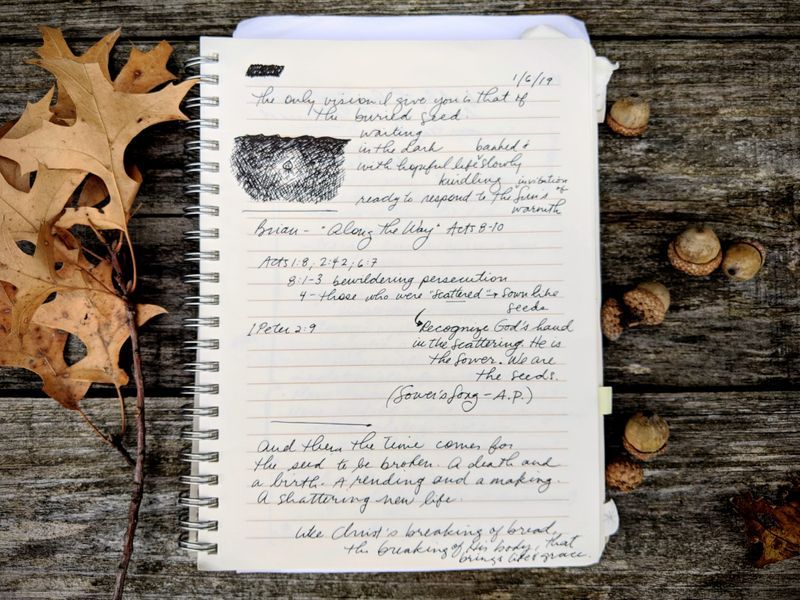 1/6/19
The only vision I give you is that of
the buried seed
waiting
in the dark banked &
with hopeful life slowly
kindling invitation
ready to respond to the Sun's of
warmth
Brian - "Along the Way" Acts 8-10
Acts 1:8, 2:42, 6:7
8:1-3 bewildering persecution
4 - those who were "scattered" → sown like
seeds
1 Peter 2:9
Recognize God's hand
in the scattering. He is
the Sower. We are
the seeds.
(Sower's Song - A.P.)
And then the time comes for
the seed to be broken. A death and
a birth. A rending and a making.
A shattering new life.
Like Christ's breaking of bread,
the breaking of His body, that
brings life & grace.